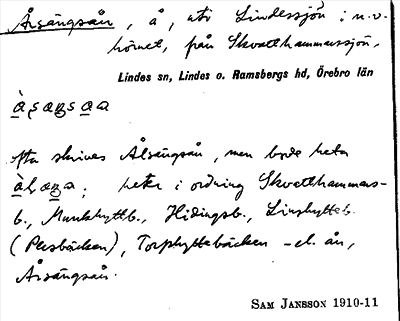 Årsängsån, å, utr Lindessjön i n.v.
hörnet, från Skvatthammarssjön,
Lindes sn, Lindes o. Ramsbergs hd, Örebro län
ofta skrives Ålsängsån, men borde heta
heter i ordning Skvatthammars-
b., Munkhyttb., Hidingsb., Linghytteb.
(Persbäcken), Torphyttebäcken – el. ån,
Årsängsån.
SAM JANSSON 1910-11